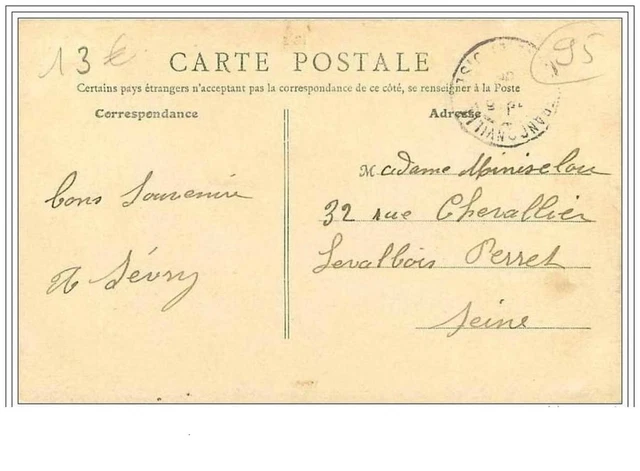 13 €
95
CARTE POSTALE
Certains pays étrangers n'acceptant pas la correspondance de ce côté, se renseigner à la Poste
Correspondance
Adresse
FRANCONVILLE
Madame
32 rue Chevallier
Levallois Perret
Seine
bons Souvenirs
Sévry